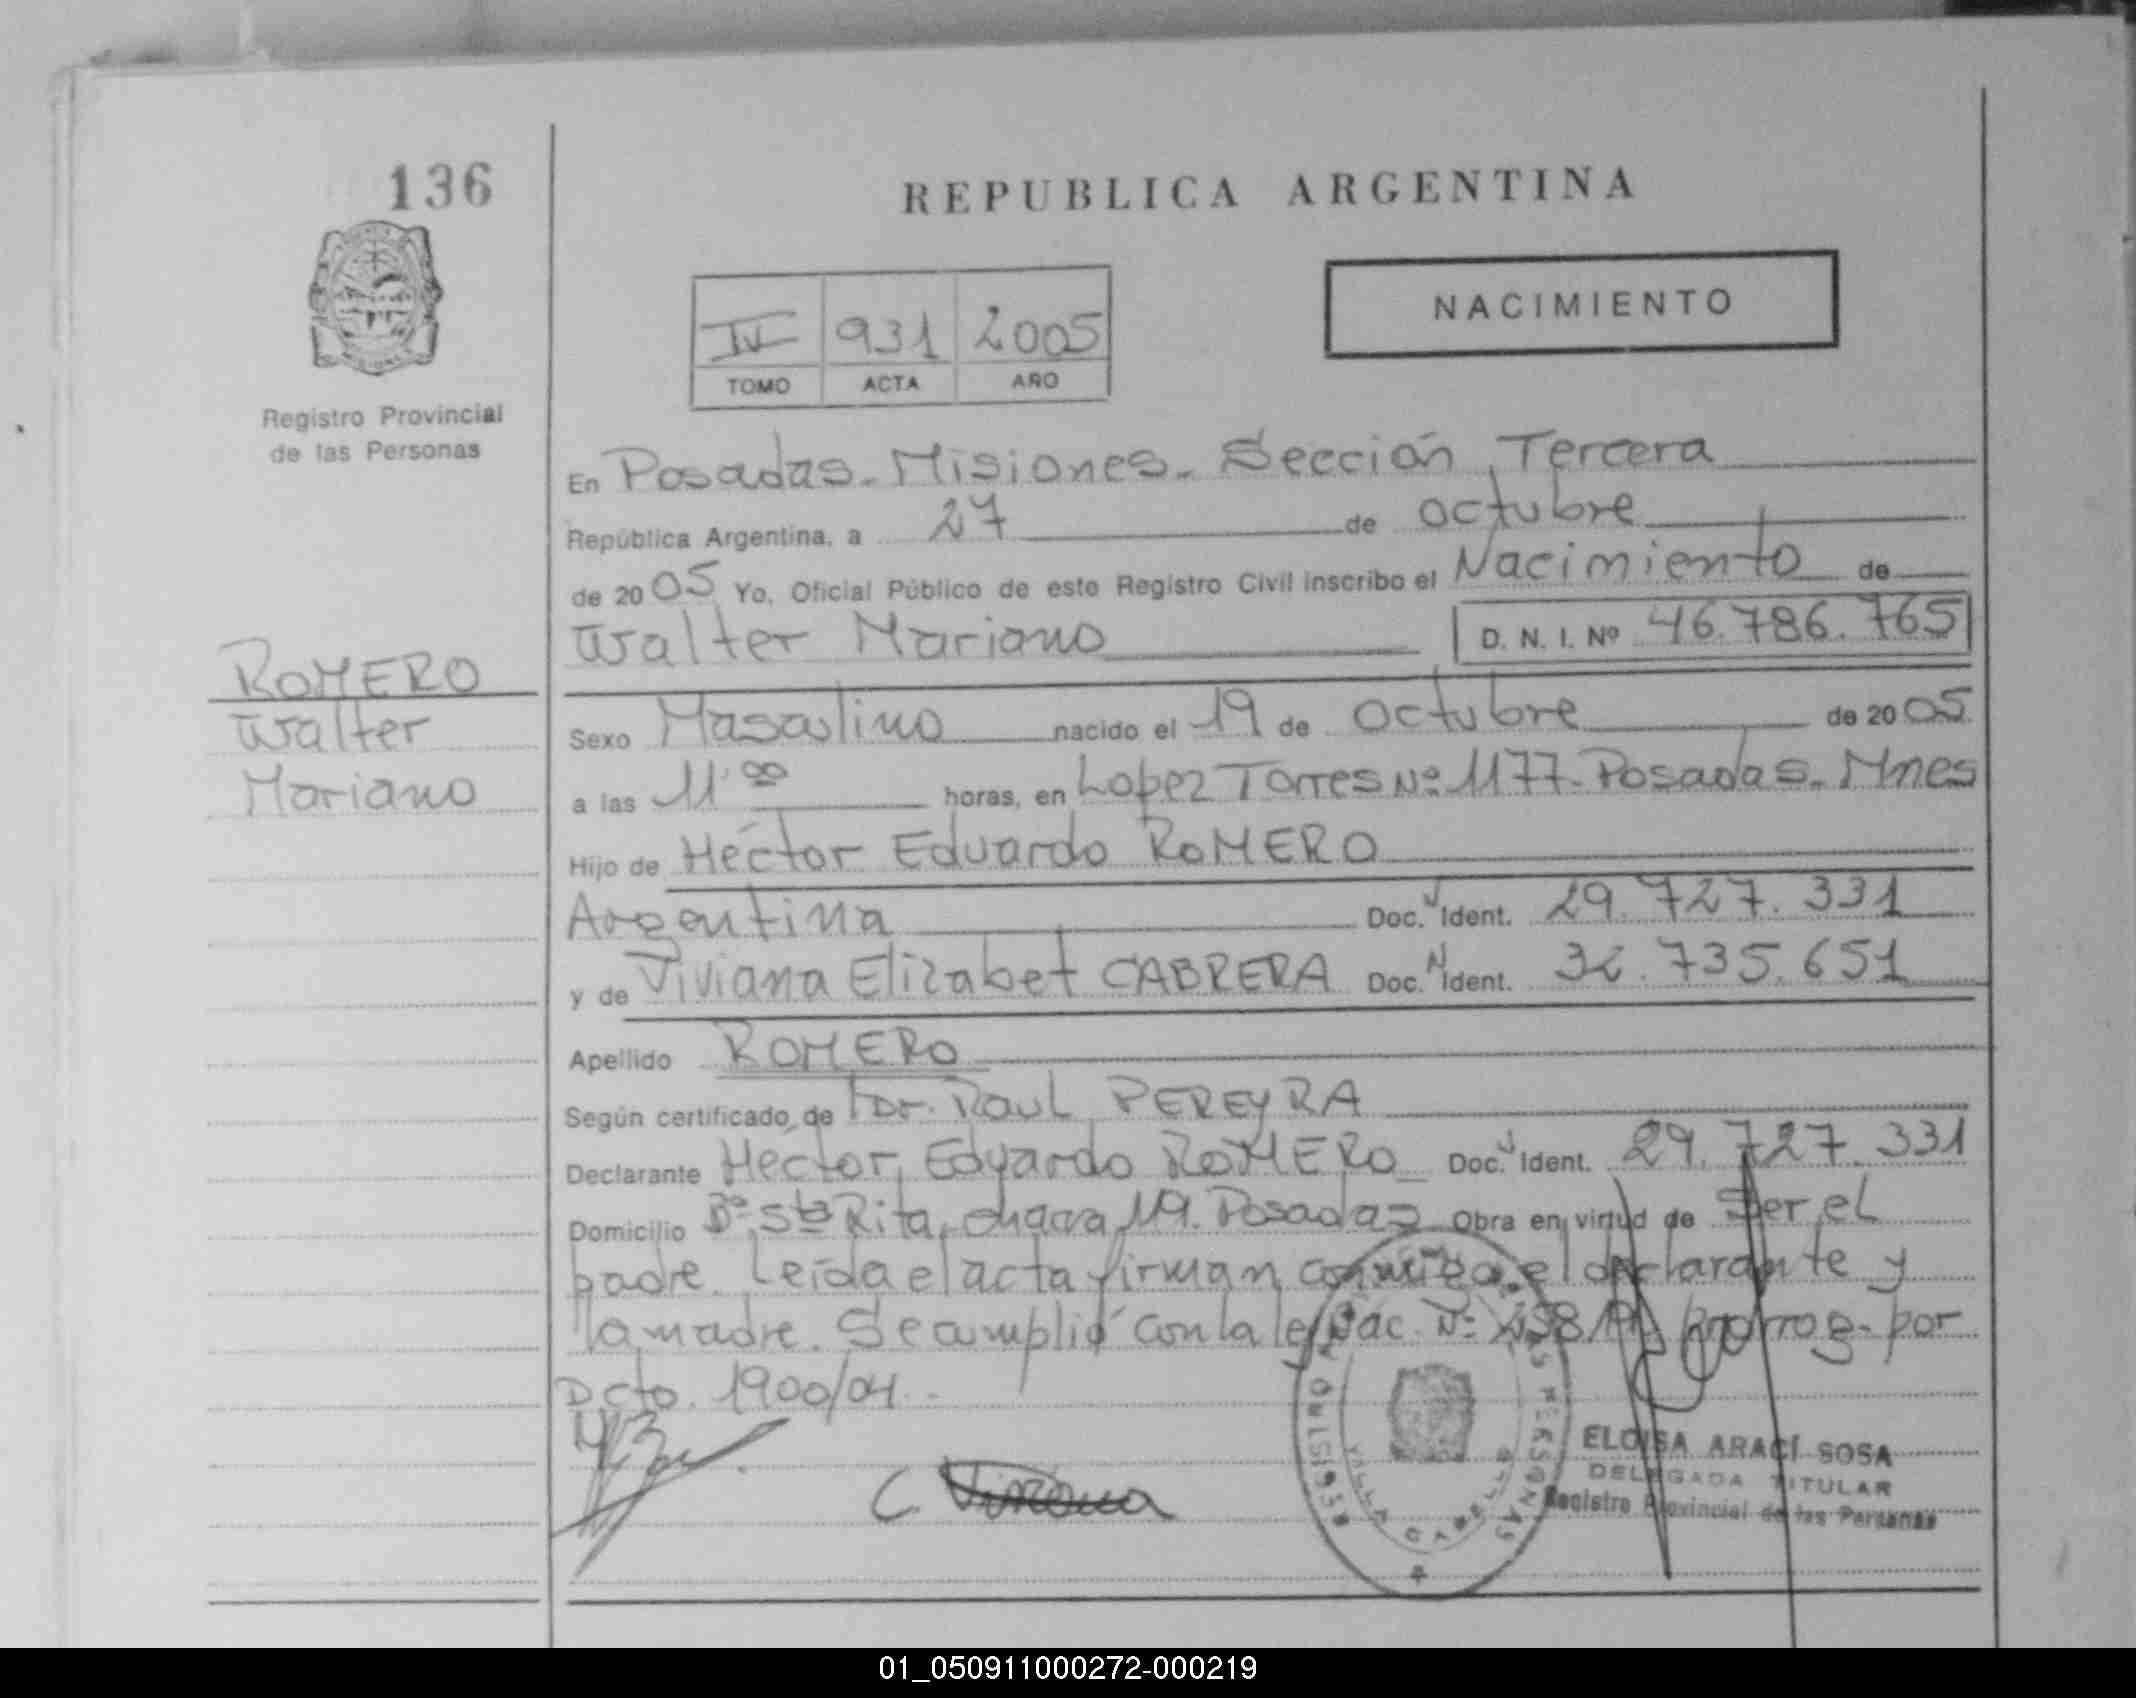 136
REPUBLICA ARGENTINA
NACIMIENTO
IV 931 2005
TOMO ACTA AÑO
Registro Provincial
de las Personas
En Posadas - Misiones - Sección Tercera
República Argentina, a 27 de octubre
de 2005 Yo, Oficial Público de este Registro Civil inscribo el Nacimiento de
Walter Mariano D. N. I. Nº 46.786.765
ROMERO
Walter
Mariano
Sexo Masculino nacido el 19 de octubre de 2005
a las 11:00 horas, en Lopez Torres Nº 1177 - Posadas - Mnes
Hijo de Héctor Eduardo ROMERO
Argentina Doc. Ident. 29.727.331
y de Viviana Elizabet CABRERA Doc. Ident. 735.651
Apellido ROMERO
Según certificado de Dr. Raul PEREYRA
Declarante Hector Eduardo ROMERO Doc. Ident. 29.727.331
Domicilio Bº Sta Rita, chacra 119. Posadas Obra en virtud de Ser el
padre. Leída el acta firman conmigo el declarante y
la madre. Se cumplió con la ley Nac. Nº prorrog. por
Dcto. 1900/04.
C. Viviana
ELOISA ARACI SOSA
DELEGADA TITULAR
Registro Provincial de las Personas
VILLA CABELLO
MISIONES
01_050911000272-000219